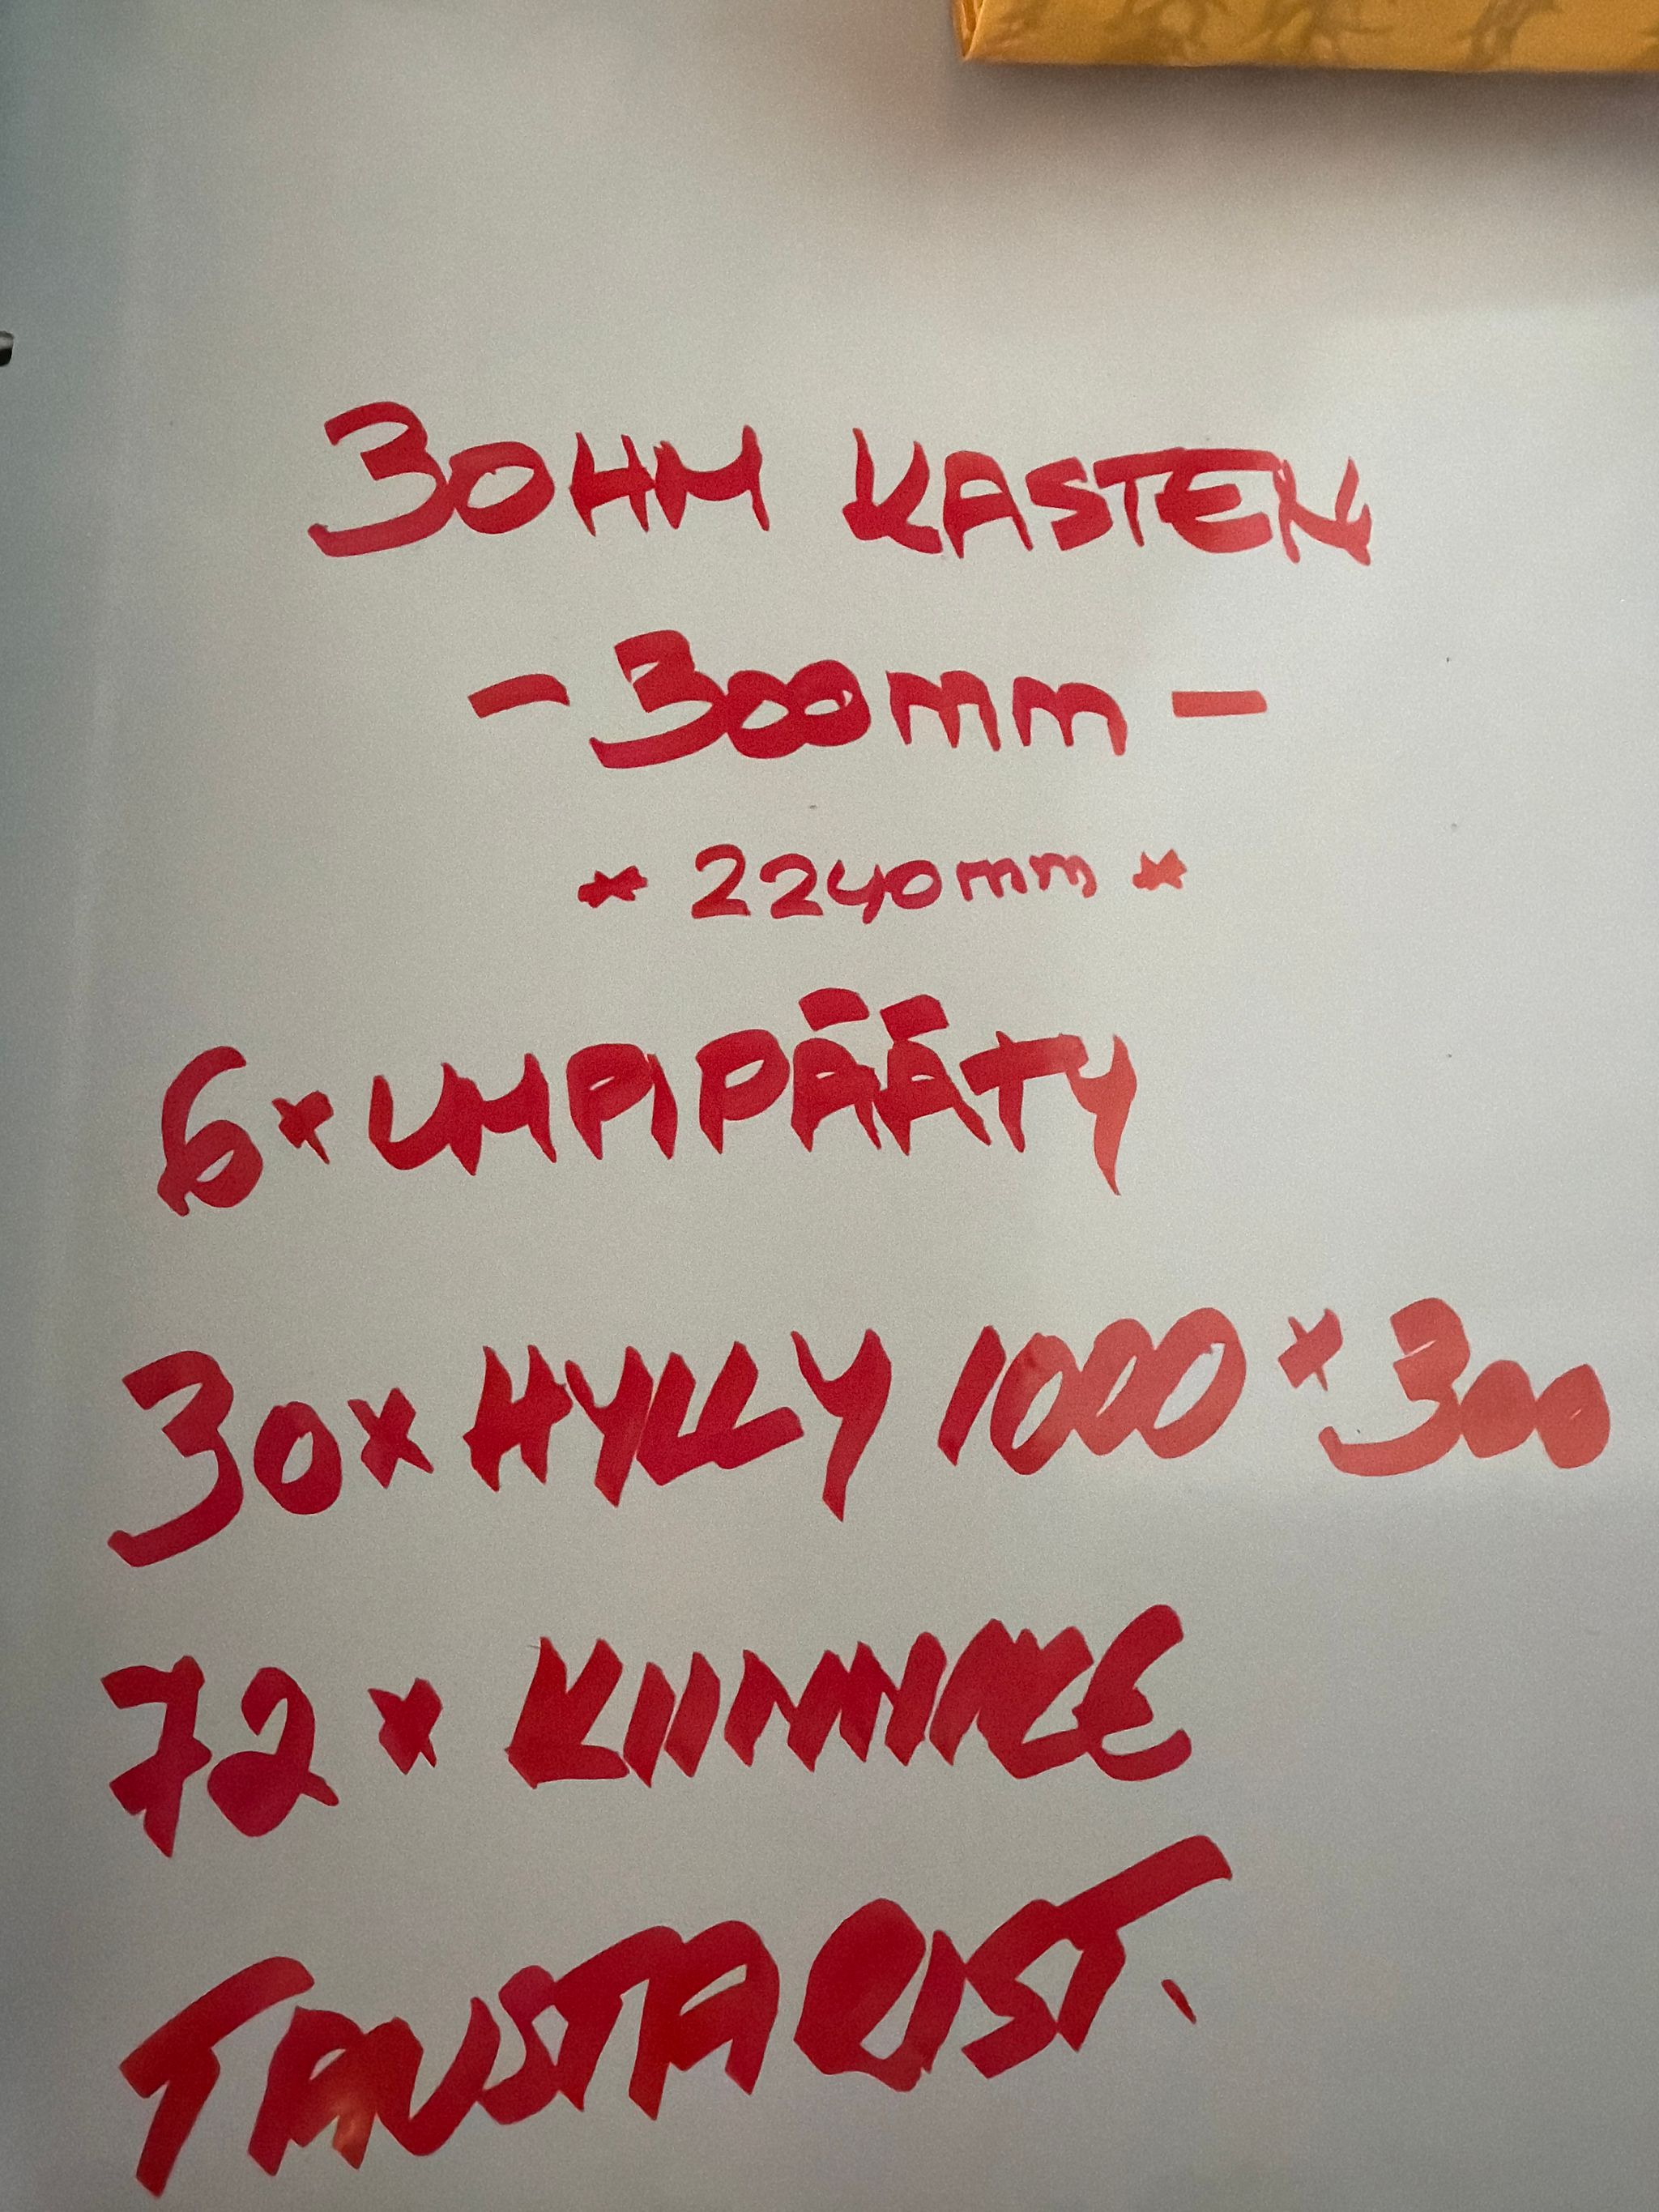 30HM KASTEN
- 300mm -
* 2240mm *
6x UMPIPÄÄTY
30x HYLLY 1000x300
72x KIINNIKE
TAUSTARIST.